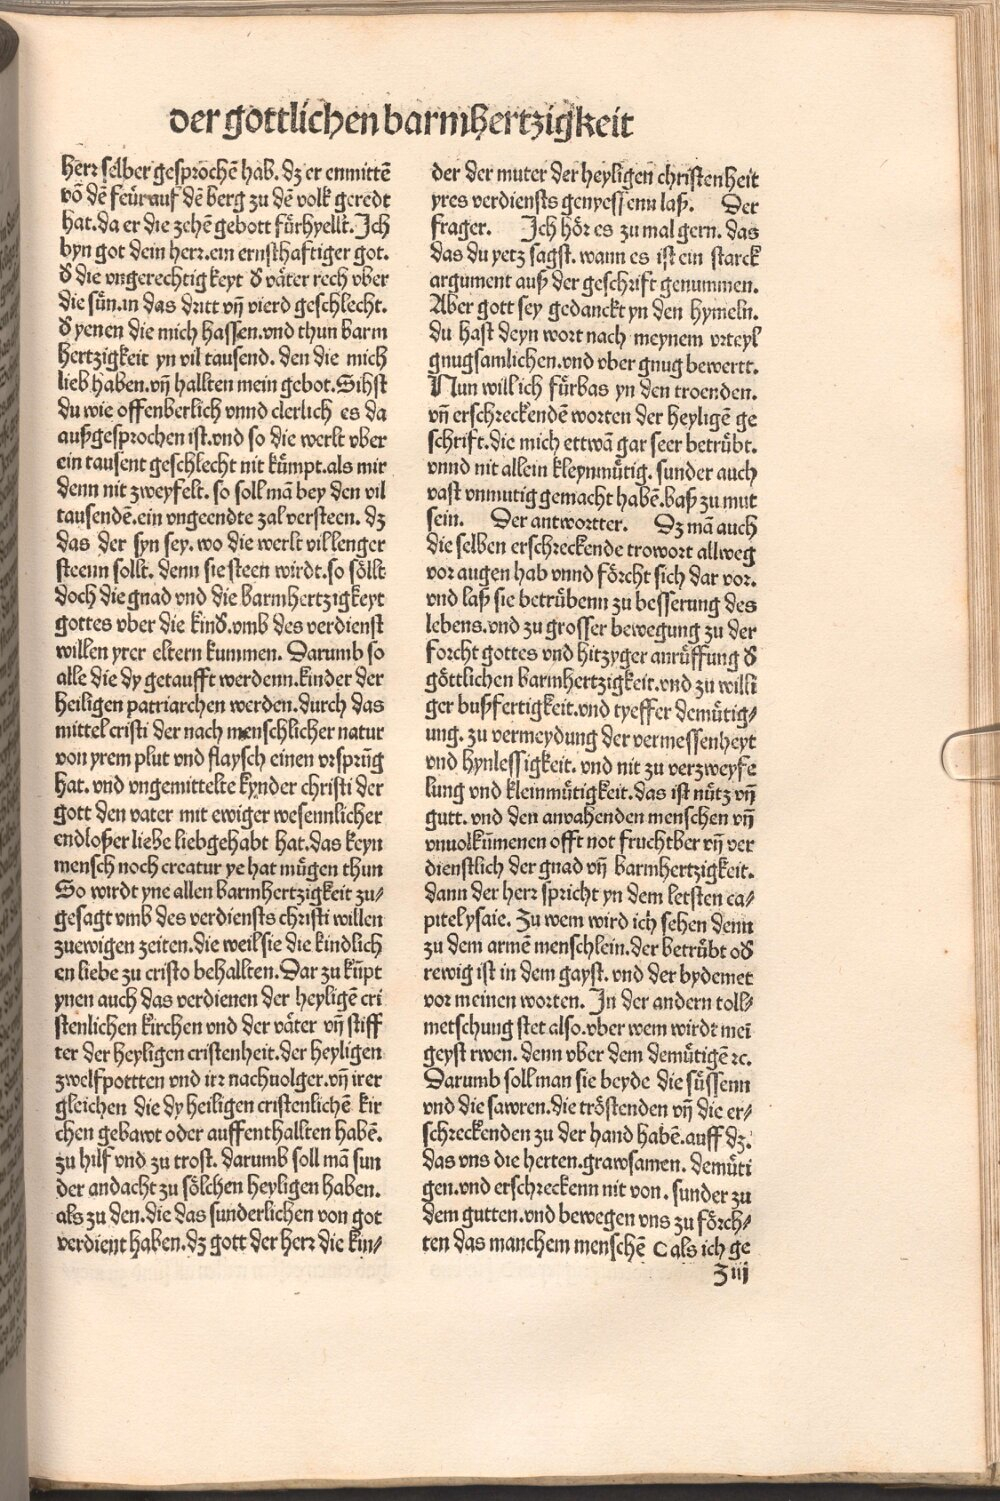 der gottlichen barmhertzigkeit
herr selber gesprochē hab. dz er enmittē
vō dē feür auf dē berg zu dē volk geredt
hat. da er die zehē gebott fürhyellt. Ich
byn got dein herr. ein ernsthaftiger got.
d̓ die vngerechtigkeyt d̓ väter rech vber
die sün. in das dritt vn̄ vierd geschlecht.
d̓ yenen die mich hassen. vnd thun barm
hertzigkeit yn vil tausend. den die mich
lieb haben. vn̄ hallten mein gebot. Sihst
du wie offenberlich vnnd clerlich es da
außgesprochen ist. vnd so die werlt vber
ein tausent geschlecht nit kümpt. als mir
denn nit zweyfelt. so soll mā bey den vil
tausendē. ein vngeendte zal versteen. dz
das der syn sey. wo die werlt vil lenger
steenn sollt. denn sie steen wirdt. so söllt
doch die gnad vnd die barmhertzigkeyt
gottes vber die kind̓. vmb des verdienst
willen yrer eltern kummen. Darumb so
alle die dy getaufft werdenn. kinder der
heiligen patriarchen werden. durch das
mittel cristi der nach menschlicher natur
von yrem plut vnd flaysch einen vrsprūg
hat. vnd vngemittelte kynder christi der
gott den vater mit ewiger wesennlicher
endloßer liebe liebgehabt hat. das keyn
mensch noch creatur ye hat mügen thun
So wirdt yne allen barmhertzigkeit zu⸗
gesagt vmb des verdiensts christi willen
zu ewigen zeiten. die weil sie die kindlich
en liebe zu cristo behallten. Dar zu kūpt
ynen auch das verdienen der heyligē cri
stenlichen kirchen vnd der väter vn̄ stiff
ter der heyligen cristenheit. der heyligen
zwelfpottten vnd irr nachuolger. vn̄ irer
gleichen die dy heiligen cristenlichē kir
chen gebawt oder auffenthallten habē.
zu hilf vnd zu trost. darumb soll mā sun
der andacht zu sölchen heyligen haben.
als zu den. die das sunderlichen von got
verdient haben. dz gott der herr die kin⸗
der der muter der heyligen christenheit
yres verdiensts genyessenn laß. Der
frager. Ich hör es zu mal gern. das
das du yetz sagst. wann es ist ein starck
argument auß der geschrift genummen.
Aber gott sey gedanckt yn den hymeln.
du hast deyn wort nach meynem vrteyl
gnugsamlichen. vnd vber gnug bewertt.
Nun will ich fürbas yn den troenden.
vn̄ erschreckendē worten der heyligē ge
schrift. die mich ettwā gar seer betrübt.
vnnd nit allein kleynmütig. sunder auch
vast vnmutig gemacht habē. baß zu mut
sein. Der antwortter. Dz mā auch
die selben erschreckende trowort allweg
vor augen hab vnnd förcht sich dar vor.
vnd laß sie betrübenn zu besserung des
lebens. vnd zu grosser bewegung zu der
forcht gottes vnd hitzyger anrüffung d̓
göttlichen barmhertzigkeit. vnd zu willi
ger bußfertigkeit. vnd tyeffer demütig⸗
ung. zu vermeydung der vermessenheyt
vnd hynlessigkeit. vnd nit zu verzweyfe
lung vnd kleinmütigkeit. das ist nütz vn̄
gutt. vnd den anvahenden menschen vn̄
vnuolkūmenen offt not fruchtber vn̄ ver
dienstlich der gnad vn̄ barmhertzigkeit.
dann der herr spricht yn dem letsten ca⸗
pitel ysaie. Zu wem wird ich sehen denn
zu dem armē menschlein. der betrübt od̓
rewig ist in dem gayst. vnd der bydemet
vor meinen worten. In der andern toll⸗
metschung stet also. vber wem wirdt mei̅
geyst rwen. denn vber dem demütigē ꝛc.
Darumb soll man sie beyde die süssenn
vnd die sawren. die tröstenden vn̄ die er⸗
schreckenden zu der hand habē. auff dz.
das vns die herten. grawsamen. demüti
gen. vnd erschreckenn nit von. sunder zu
dem gutten. vnd bewegen vns zu förch⸗
ten das manchem menschē C als ich ge
Z iii